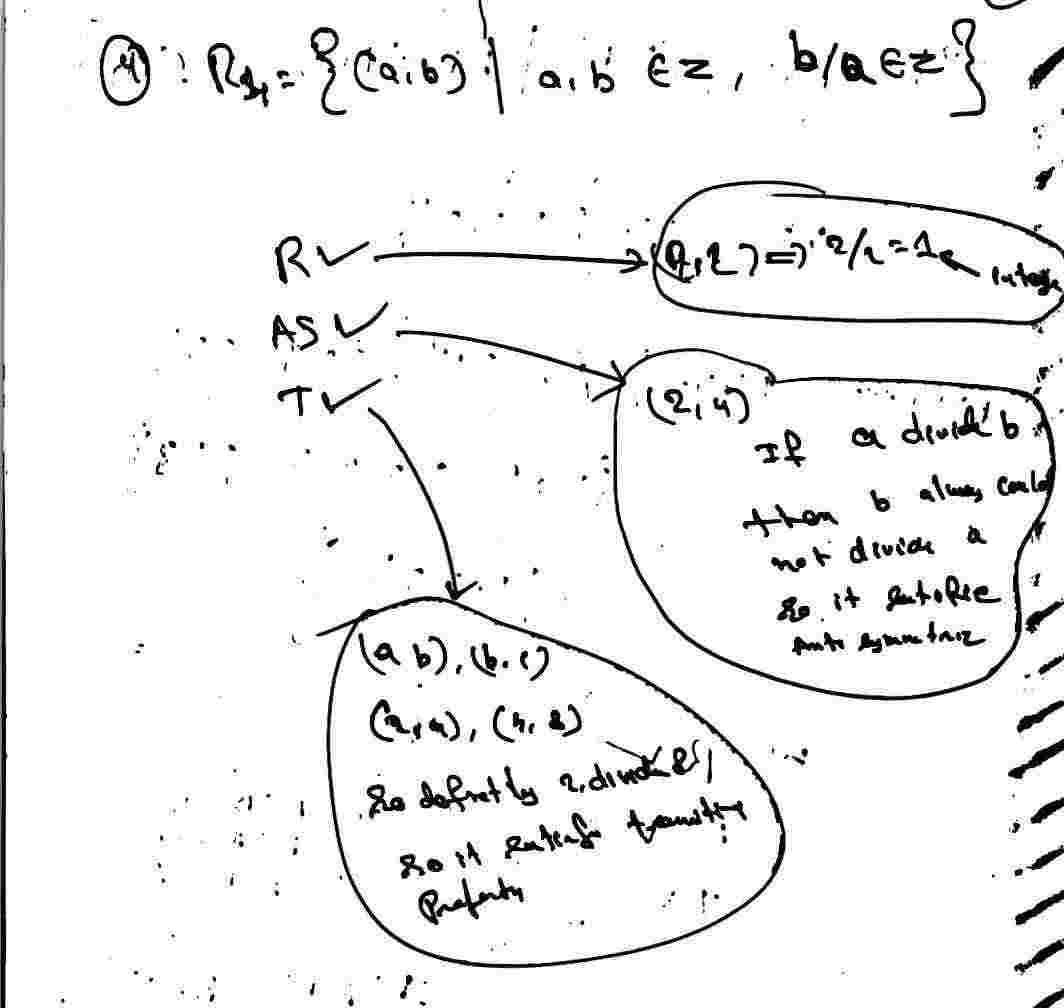 ④ : R₄ = { (a, b) | a, b ∈ z, b/a ∈ z }
R ✓
(2, 2) => 2/2 = 1 ← integ
AS ✓
T ✓
(2, 4)
If a divide b
then b alway could
not divide a
So it satisfie
Anti symmetric
(a b), (b, c)
(2, 4), (4, 8)
So definetly 2 divide 8,
So it satisfy transitive
Property